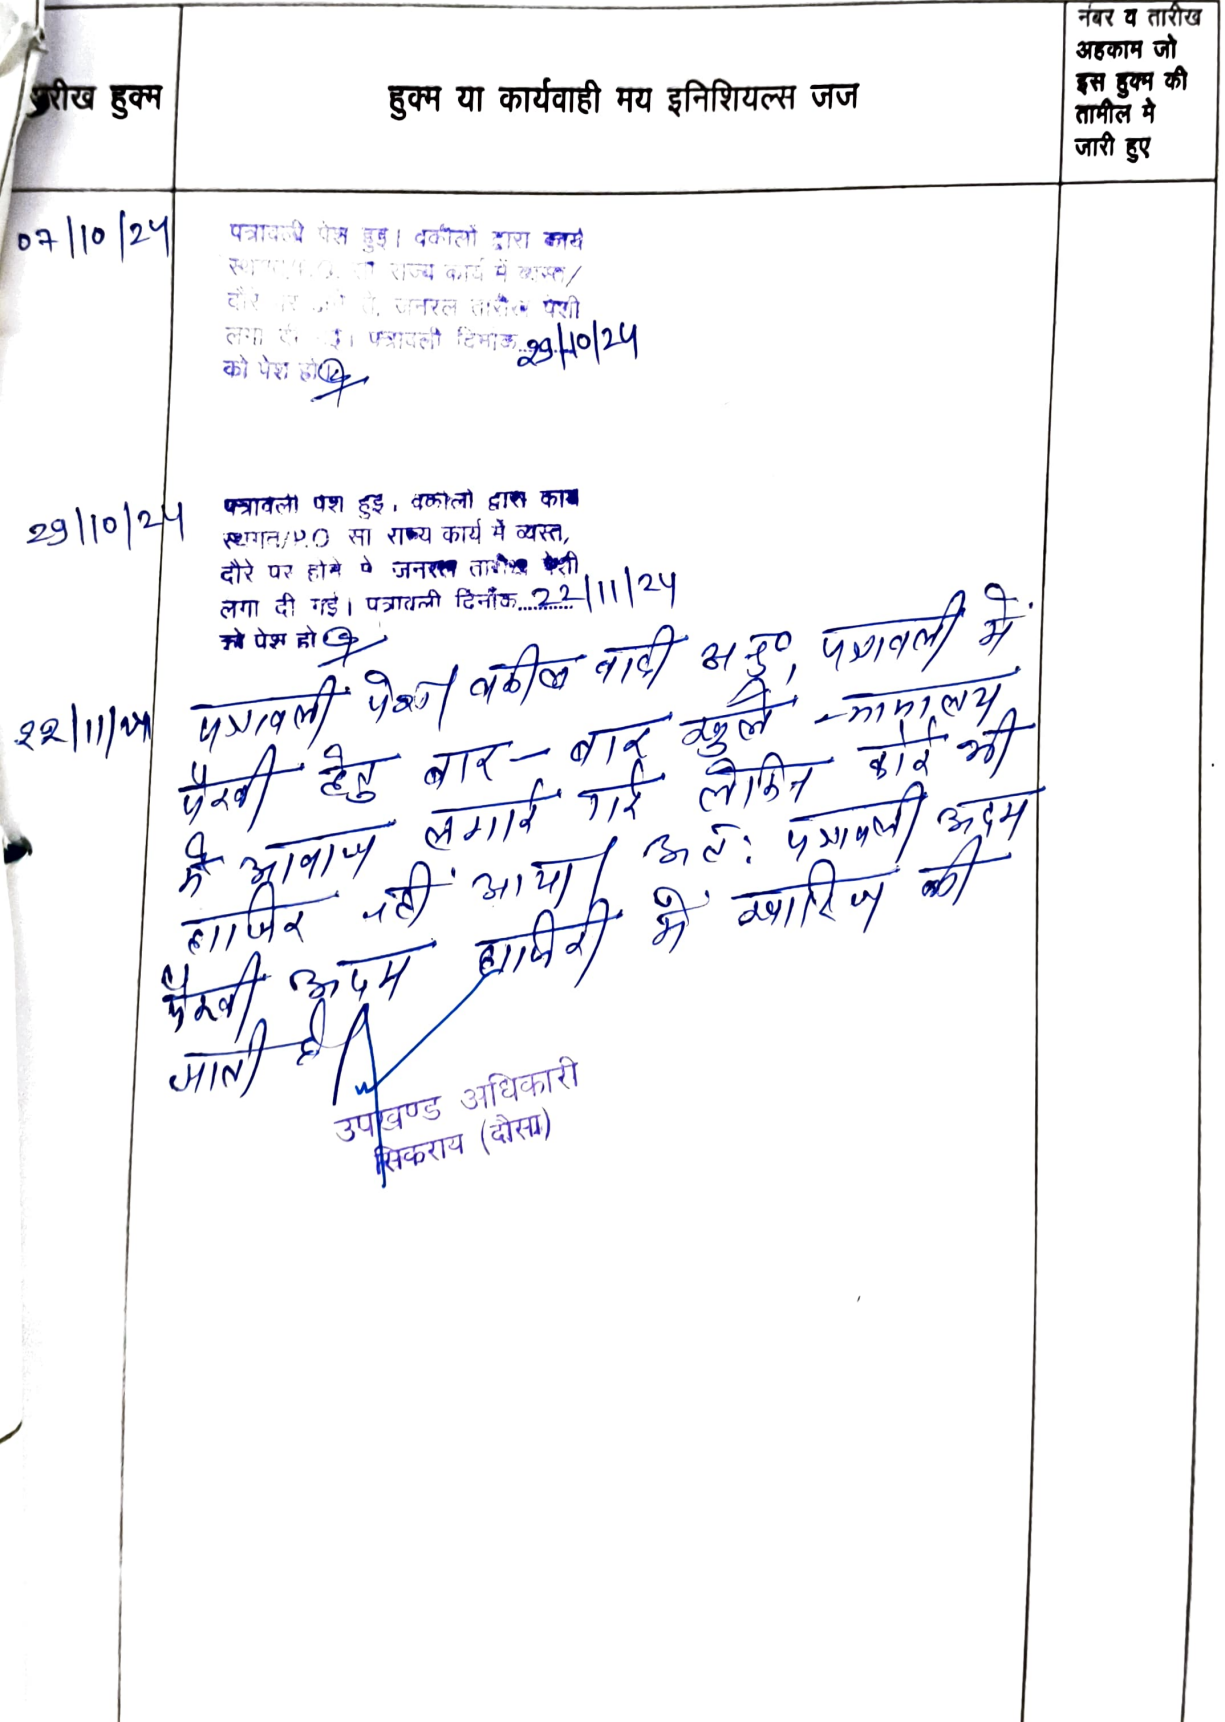 नंबर व तारीख
अहकाम जो
इस हुक्म की
तामील मे
जारी हुए
तारीख हुक्म
हुक्म या कार्यवाही मय इनिशियल्स जज
07/10/24
पत्रावली पेश हुई। वकीलों द्वारा कार्य
राज्य कार्य में व्यस्त/
दौरे जनरल तारीख पेशी
लगा पत्रावली दिनांक 29/10/24
को पेश हो
29/10/24
पत्रावली पेश हुई, वकीलों द्वारा कार्य
स्थगन/P.O सा राज्य कार्य में व्यस्त,
दौरे पर होने से जनरल तारीख पेशी
लगा दी गई। पत्रावली दिनाँक......22/11/24
को पेश हो
22/11/24
पत्रावली पेश। वकील वादी अनु०, पत्रावली में
पैरवी हेतु बार-बार खुले न्यायालय
में आवाज लगाई गई लेकिन कोई भी
हाजिर नहीं आया। अतः पत्रावली अदम
पैरवी अदम हाजिरी में खारिज की
जाती है।
उपखण्ड अधिकारी
सिकराय (दौसा)